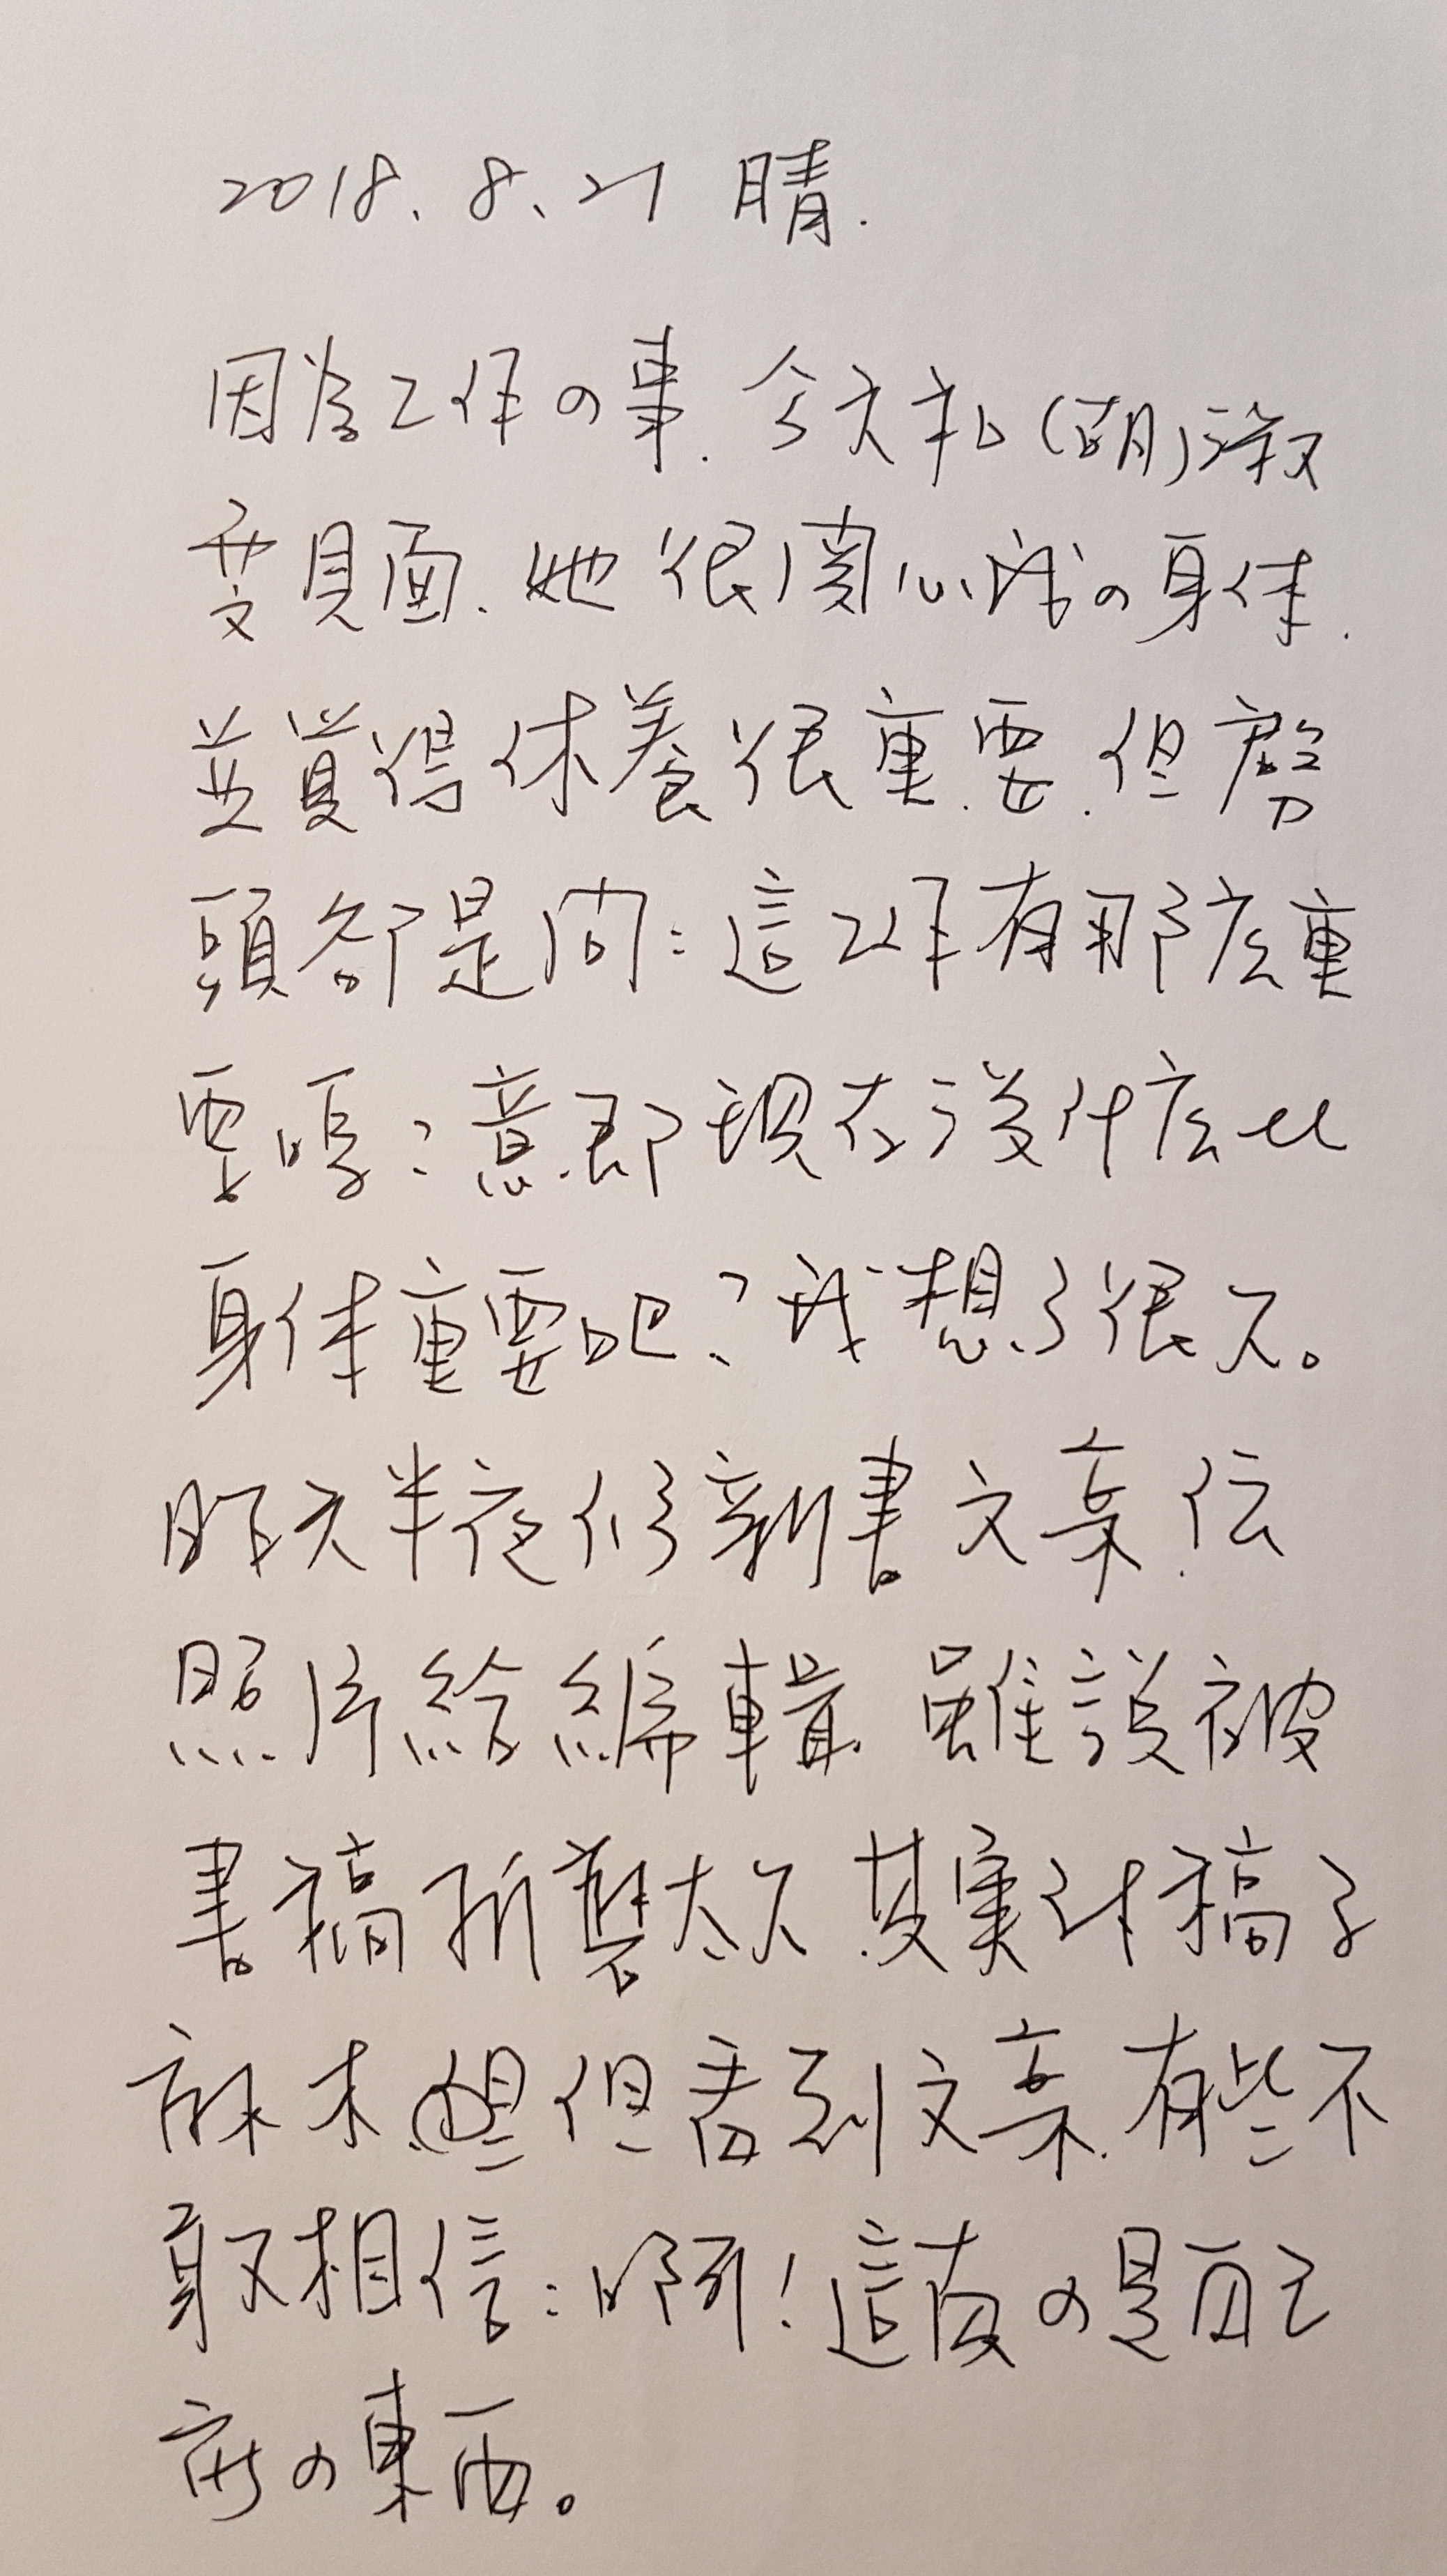 2018.8.21 晴.
因為工作の事.今天和(胡)淑
雯見面.她很關心我の身体.
並覺得休養很重要.但磨
頭卻是問:這工作有那広重
要嗎?意即現在没什広比
身体重要吧?我想了很久。
昨天半夜修新書文案.伝
照片給編輯.雖說被
書稿折磨太久.其實对稿子
麻木.但看到文案.有些不
敢相信:啊!這真の是自己
寫の東西。